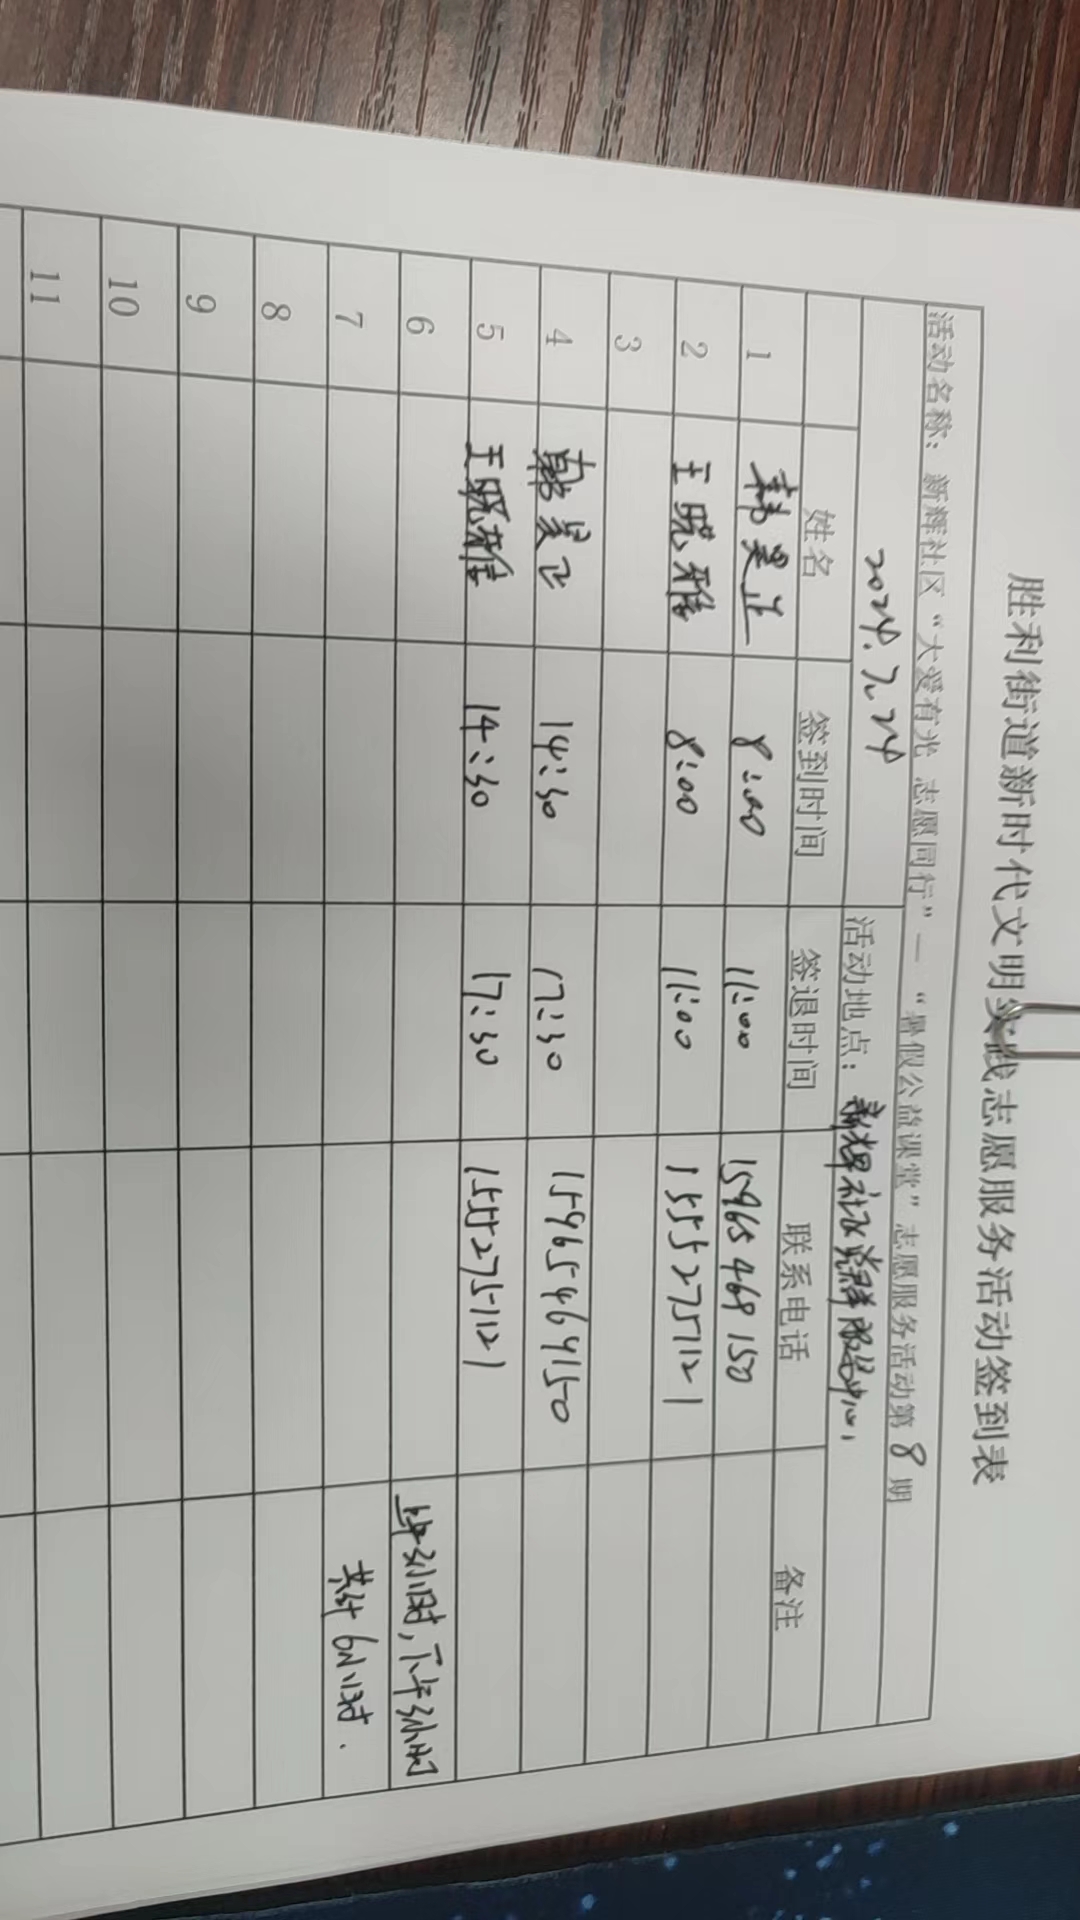 胜利街道新时代文明实践志愿服务活动签到表
活动名称：新辉社区“大爱有光 志愿同行”—“暑假公益课堂”志愿服务活动第 8 期
2024.7.24 活动地点：新辉社区党群服务中心
姓名 签到时间 签退时间 联系电话 备注
1 韩昊正 8:00 11:00 15965469150
2 王晓雅 8:00 11:00 15552751121
3
4 韩昊正 14:30 17:30 15965469150
5 王晓雅 14:30 17:30 15552751121
6 上午3小时，下午3小时
7 共计6小时.
8
9
10
11